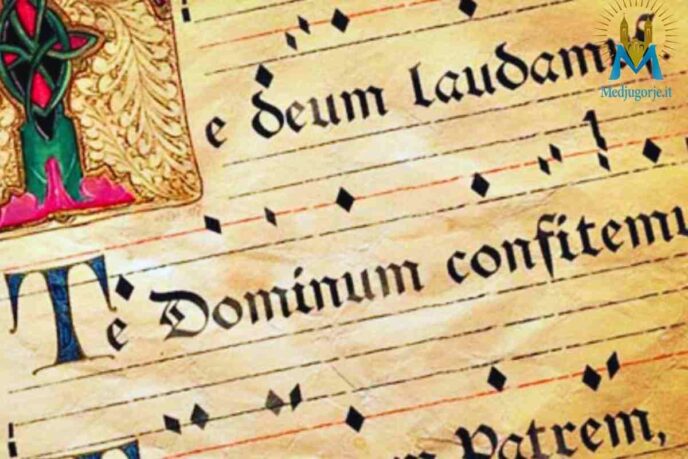 e deum laudamus.
Medjugorje.it
Te Dominum confitemu
m Patrem,